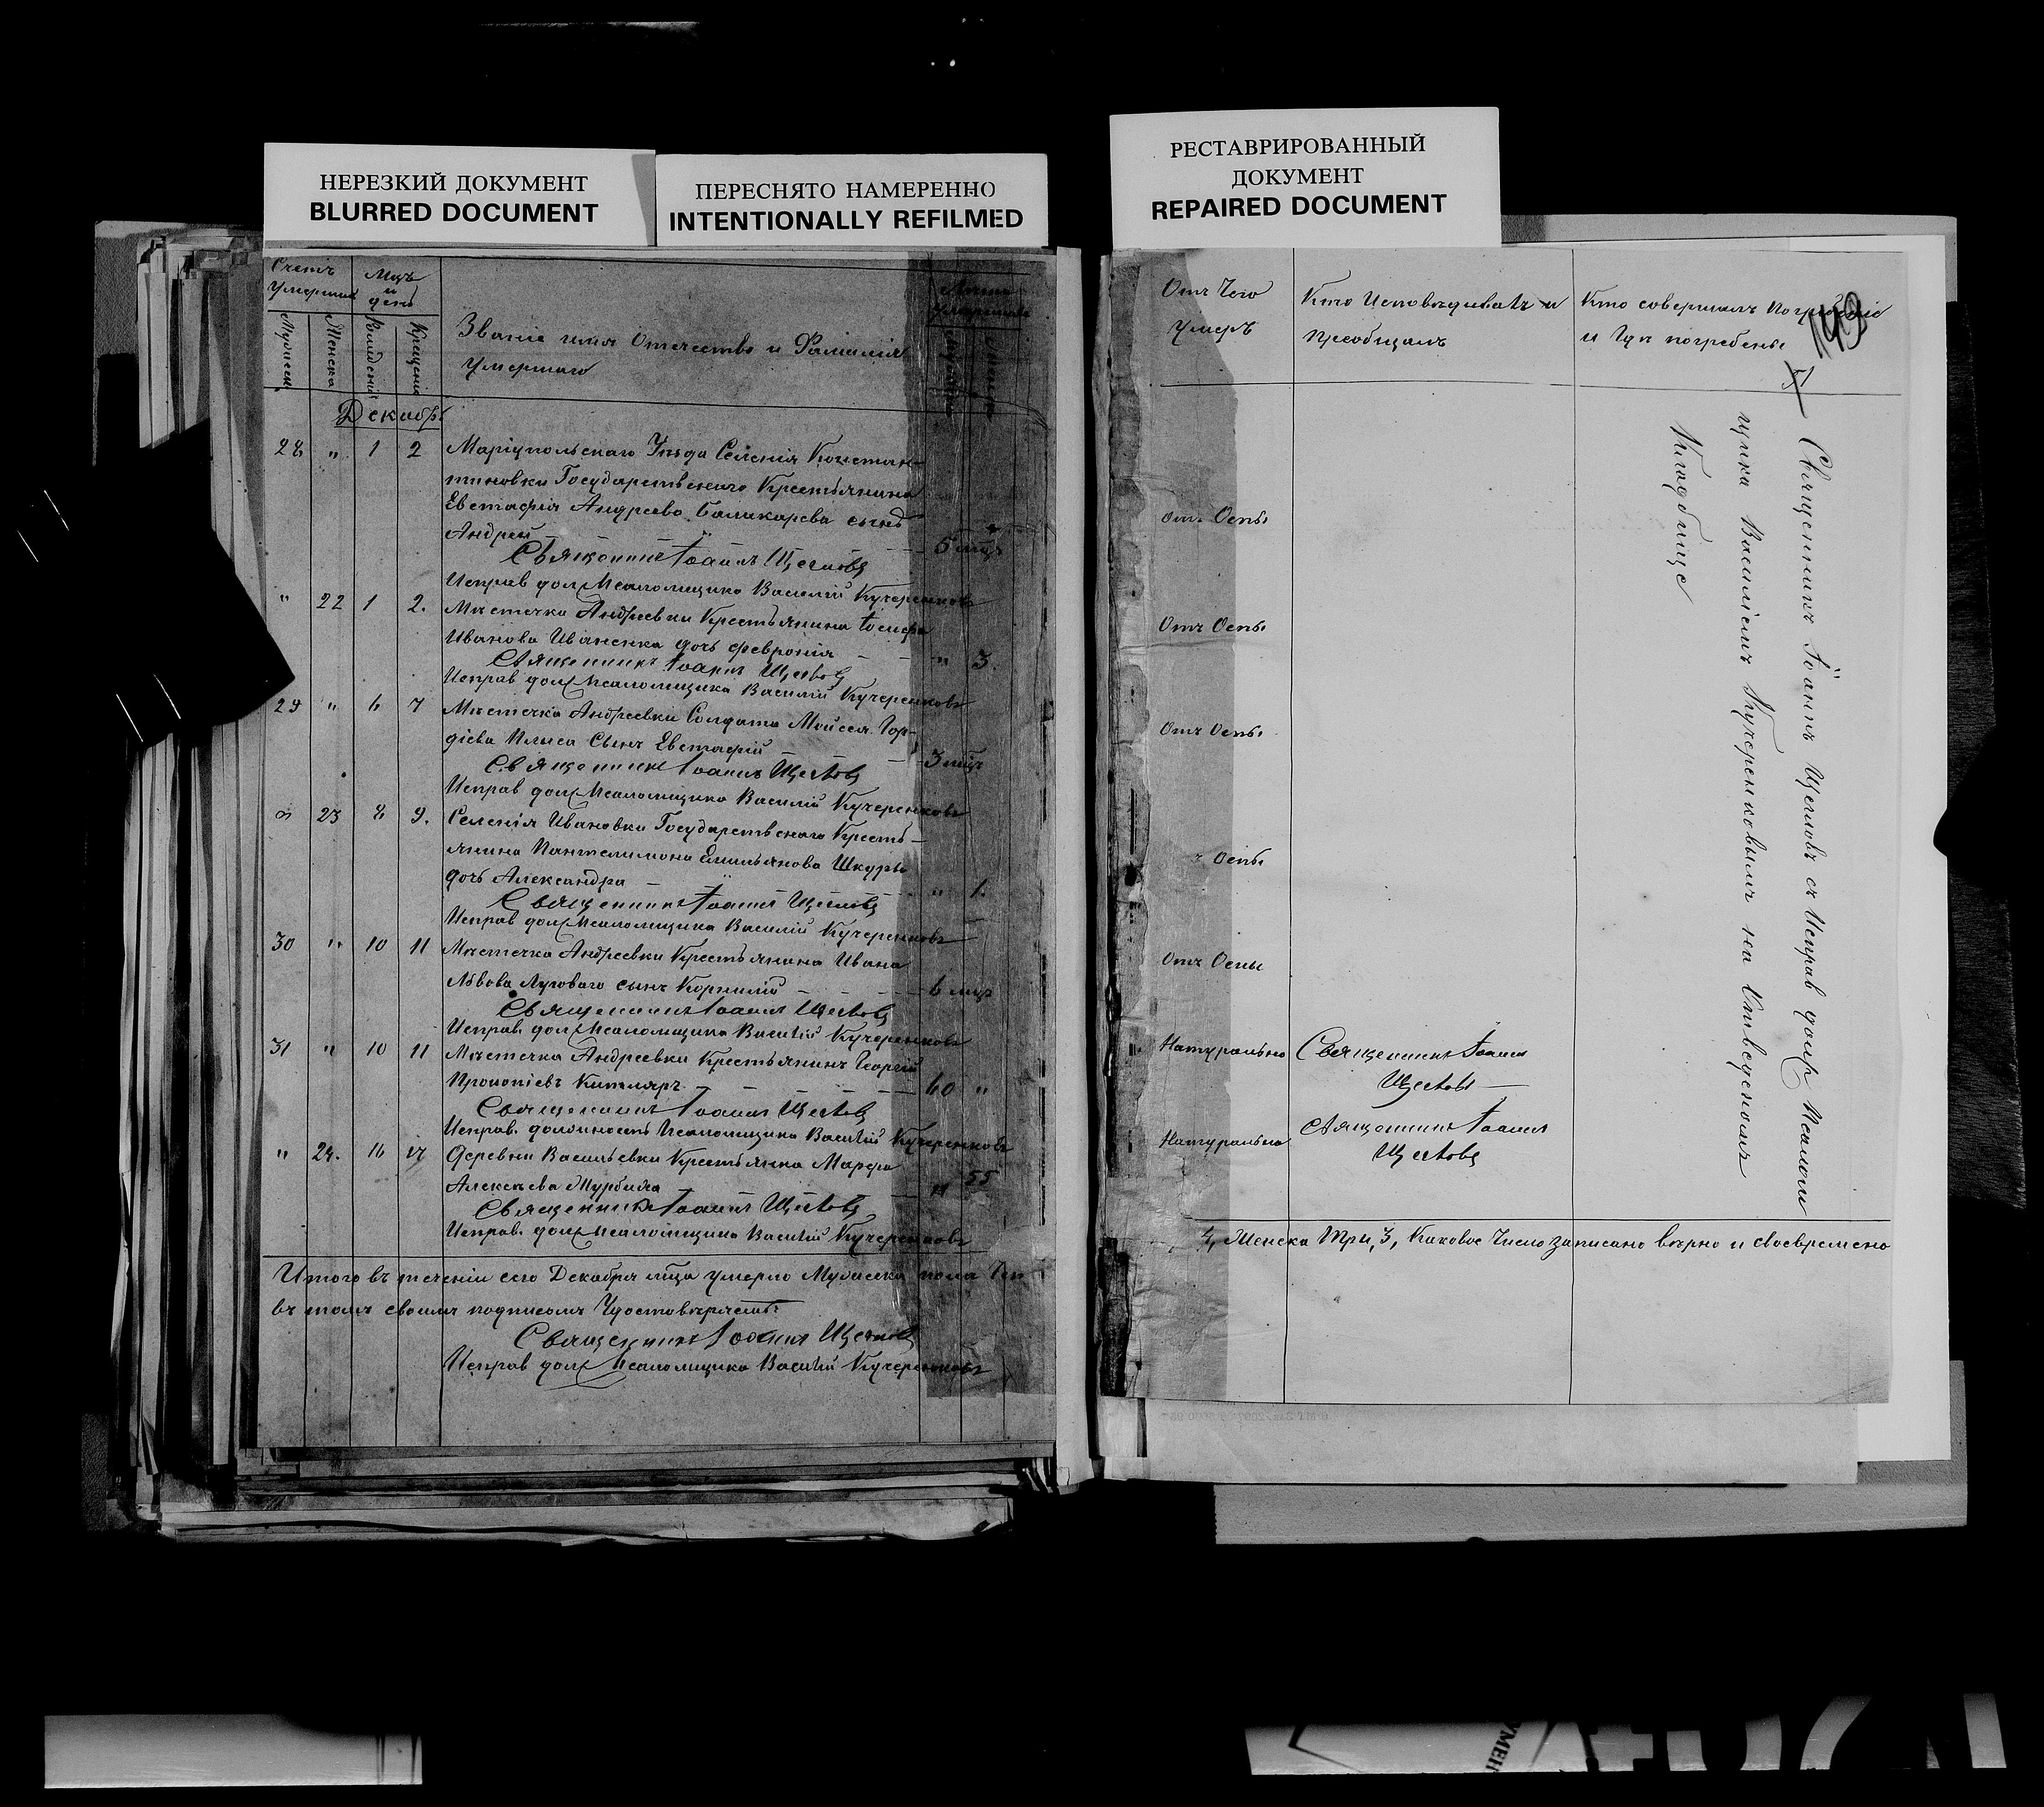 НЕРЕЗКИЙ ДОКУМЕНТ
BLURRED DOCUMENT
ПЕРЕСНЯТО НАМЕРЕННО
INTENTIONALLY REFILMED
РЕСТАВРИРОВАННЫЙ
ДОКУМЕНТ
REPAIRED DOCUMENT
Счетъ Умершихъ
Мцъ и день
Званіе имя Отечество и Фамилія
Умершаго
Лѣта
Мужеска
Женска
Декабрь
28 " 1 2 Маріупольскаго Уѣзда Селенія Констан-
тиновки Государственнаго Крестьянина
Евстафія Андреева сынъ
Андрей 5 мцъ
Священникъ Іоаннъ Щегловъ
Исправ долж Псаломщика Василій Кучеренковъ
" 22 1 2. Мѣстечка Андреевки Крестьянина Іосифа
Иванова Иваненка дочь Февронія " 3.
Священникъ Іоаннъ Щегловъ
Исправ долж Псаломщика Василій Кучеренковъ
29 " 6 7 Мѣстечка Андреевки Солдата Моисея Гор-
діева сынъ Евстафій 3 мцъ
Священникъ Іоаннъ Щегловъ
Исправ долж Псаломщика Василій Кучеренковъ
23 8 9. Селенія Ивановки Государственнаго Кресть-
янина Пантелимона Емильянова Шкуры
дочь Александра " 1.
Священникъ Іоаннъ Щегловъ
Исправ долж Псаломщика Василій Кучеренковъ
30 " 10 11 Мѣстечка Андреевки Крестьянина Ивана
Львова Луговаго сынъ Корнилій 6 мцъ
Священникъ Іоаннъ Щегловъ
Исправ. долж Псаломщика Василій Кучеренковъ
31 " 10 11 Мѣстечка Андреевки Крестьянинъ Георгій
Прокопіевъ Китляръ 60 "
Священникъ Іоаннъ Щегловъ
Исправ. должность Псаломщика Василій Кучеренковъ
" 24. 16 17 Деревни Васильевки Крестьянка Марфа
Алексѣева " 55
Священникъ Іоаннъ Щегловъ
Исправ. долж Псаломщика Василій Кучеренковъ
Итого въ теченіи сего Декабря мца умерло Мужеска пола
въ томъ своимъ подписомъ Удостовѣряемъ
Священникъ Іоаннъ Щегловъ
Исправ долж Псаломщика Василій Кучеренковъ
Отъ Чего
Умеръ
Кто Исповѣдивалъ и
Пріобщалъ
Кто совершалъ Погребеніе
и Гдѣ погребены
Отъ Оспы
Отъ Оспы
Отъ Оспы
Оспы
Отъ Оспы
Натурально Священникъ Іоаннъ
Щегловъ
Натурально Священникъ Іоаннъ
Щегловъ
Священникъ Іоаннъ Щегловъ съ Исправ долж Псалом
щика Василіемъ Кучеренковымъ на Отведеномъ
Кладбище
4, Женска Три, 3, Каковое Число записано вѣрно и своевремено